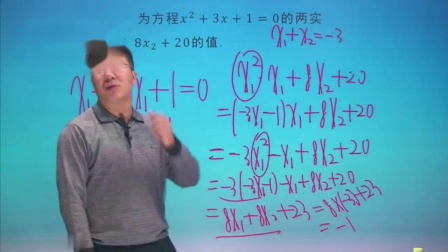 为方程x²+3x+1=0的两实
8x₂+20的值.
x₁+x₂=-3
x₁+1=0
x₁² x₁+8x₂+20
=(-3x₁-1)x₁+8x₂+20
=-3x₁²-x₁+8x₂+20
=-3(-3x₁-1)-x₁+8x₂+20
=8x₁+8x₂+23=8×(-3)+23
=-1